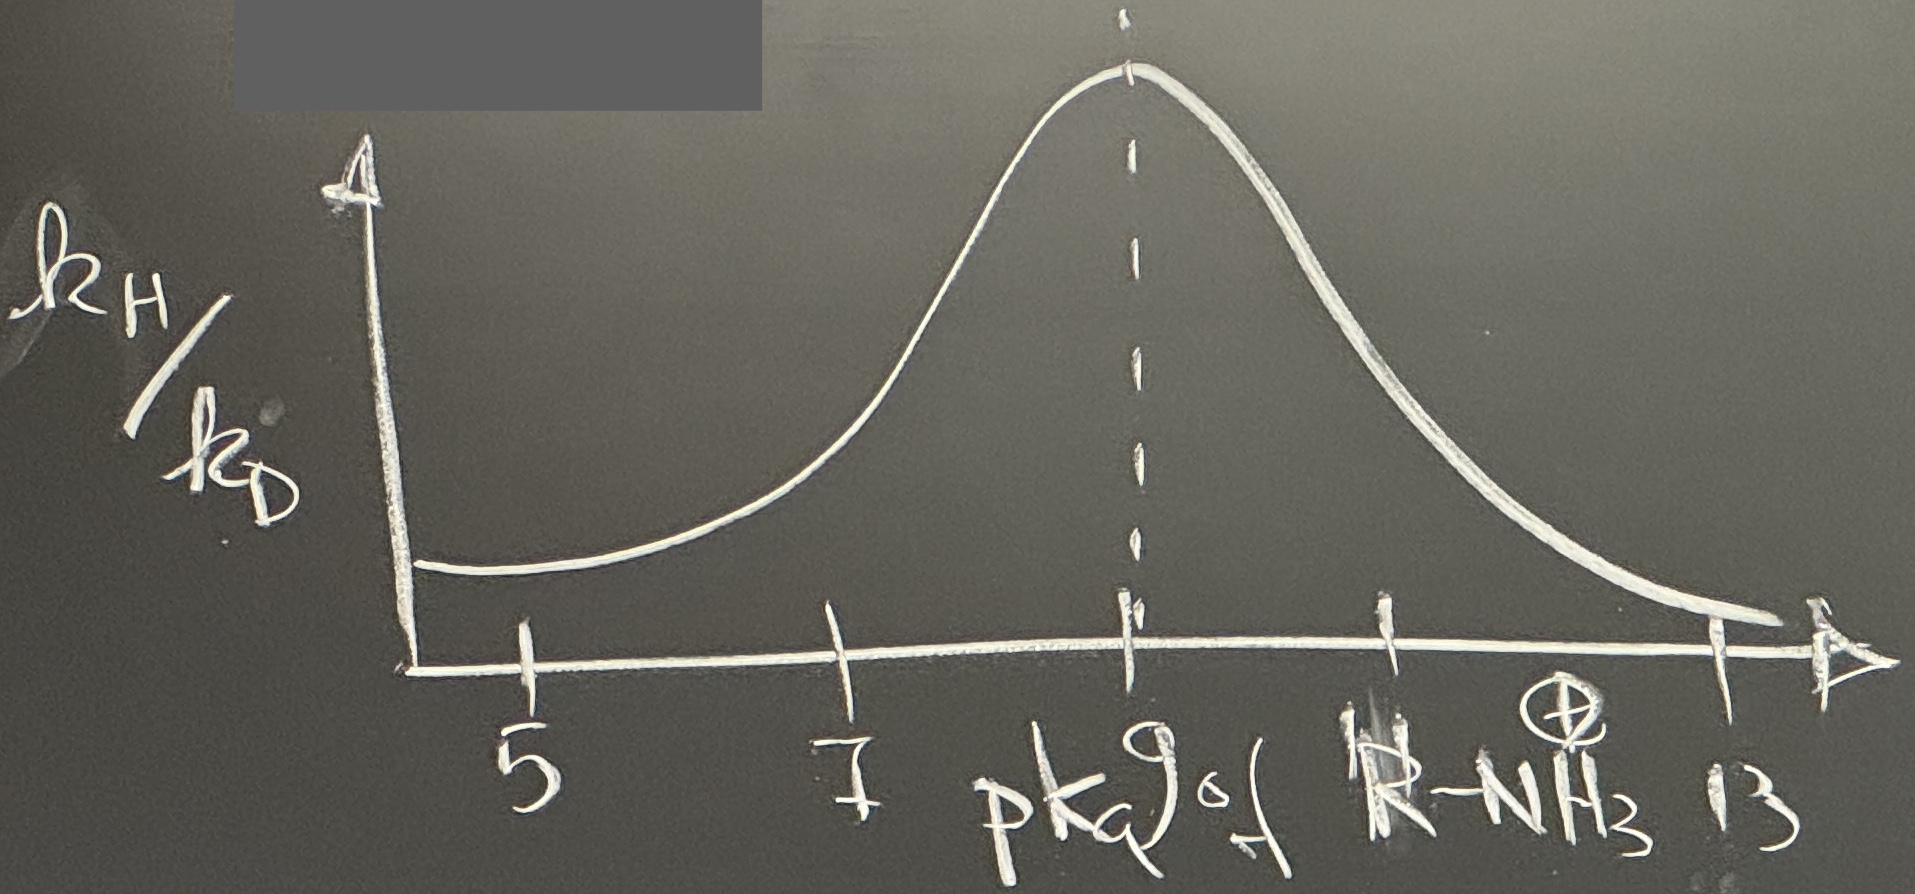 kH/kD
5 7 9 13
pKa of R-NH3⊕